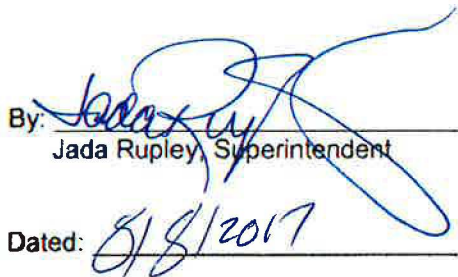 By: Jada Rupley
Jada Rupley, Superintendent
Dated: 8/8/2017